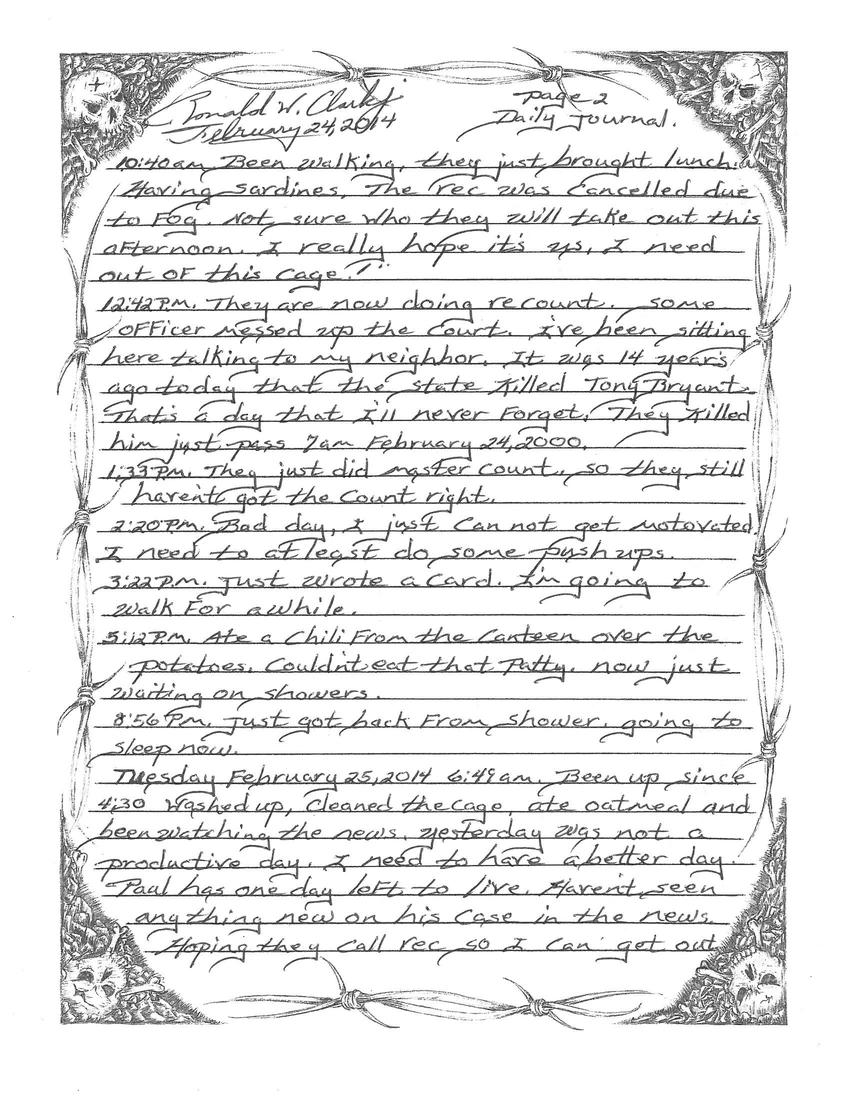 Ronald W. Clark Jr
February 24, 2014
page 2
Daily Journal.
10:40am Been walking, they just brought lunch.
Having sardines. The rec was cancelled due
to Fog. Not sure who they will take out this
afternoon. I really hope it's us, I need
out of this cage!!
12:42P.M. They are now doing recount. Some
officer messed up the court. I've been sitting
here talking to my neighbor. It was 14 years
ago today that the state Killed Tony Bryant.
That's a day that I'll never Forget. They Killed
him just pass 7am February 24, 2000.
1:33P.M. They just did master count. So they still
haven't got the count right.
2:20P.M. Bad day, I just can not get motovated.
I need to at least do some push ups.
3:22P.M. Just wrote a card. I'm going to
walk For awhile.
5:12P.M. Ate a Chili From the Canteen over the
potatoes. Couldn't eat that Patty. now just
waiting on showers.
8:56P.M. Just got back From shower. going to
sleep now.
Tuesday February 25, 2014 6:49am. Been up since
4:30 Washed up, cleaned the cage, ate oatmeal and
been watching the news. yesterday was not a
productive day. I need to have a better day.
Paul has one day left to live. Haven't seen
anything new on his case in the news.
Hoping they call rec so I can get out